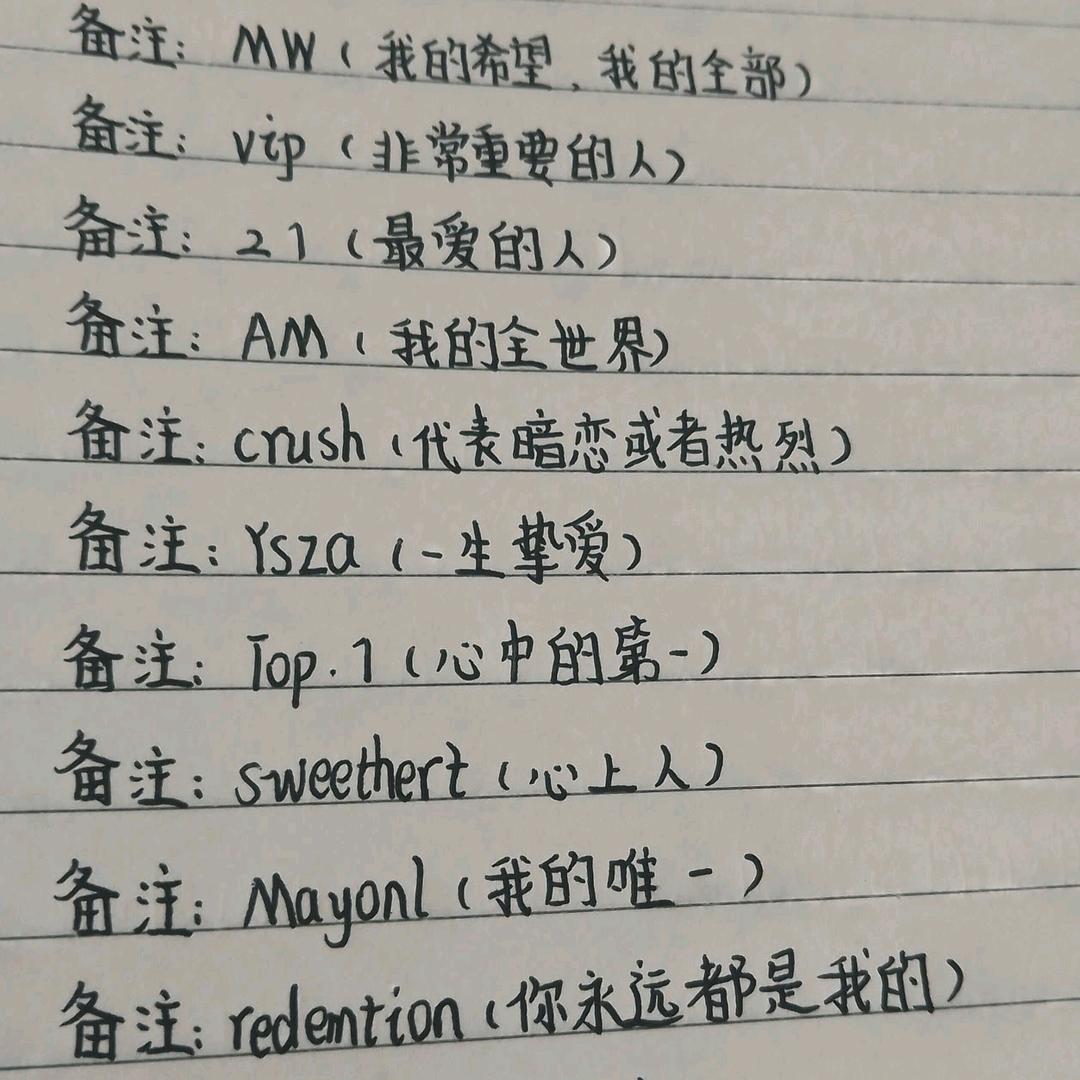 备注：MW（我的希望，我的全部）
备注：vip（非常重要的人）
备注：21（最爱的人）
备注：AM（我的全世界）
备注：crush（代表暗恋或者热烈）
备注：Ysza（一生挚爱）
备注：Top.1（心中的第一）
备注：sweethert（心上人）
备注：Mayonl（我的唯一）
备注：redemtion（你永远都是我的）